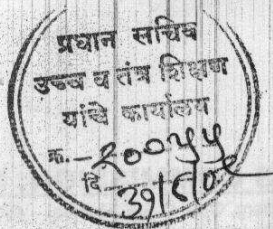 प्रधान सचिव
उच्च व तंत्र शिक्षण
यांचे कार्यालय
क्र.-२००५५
दि